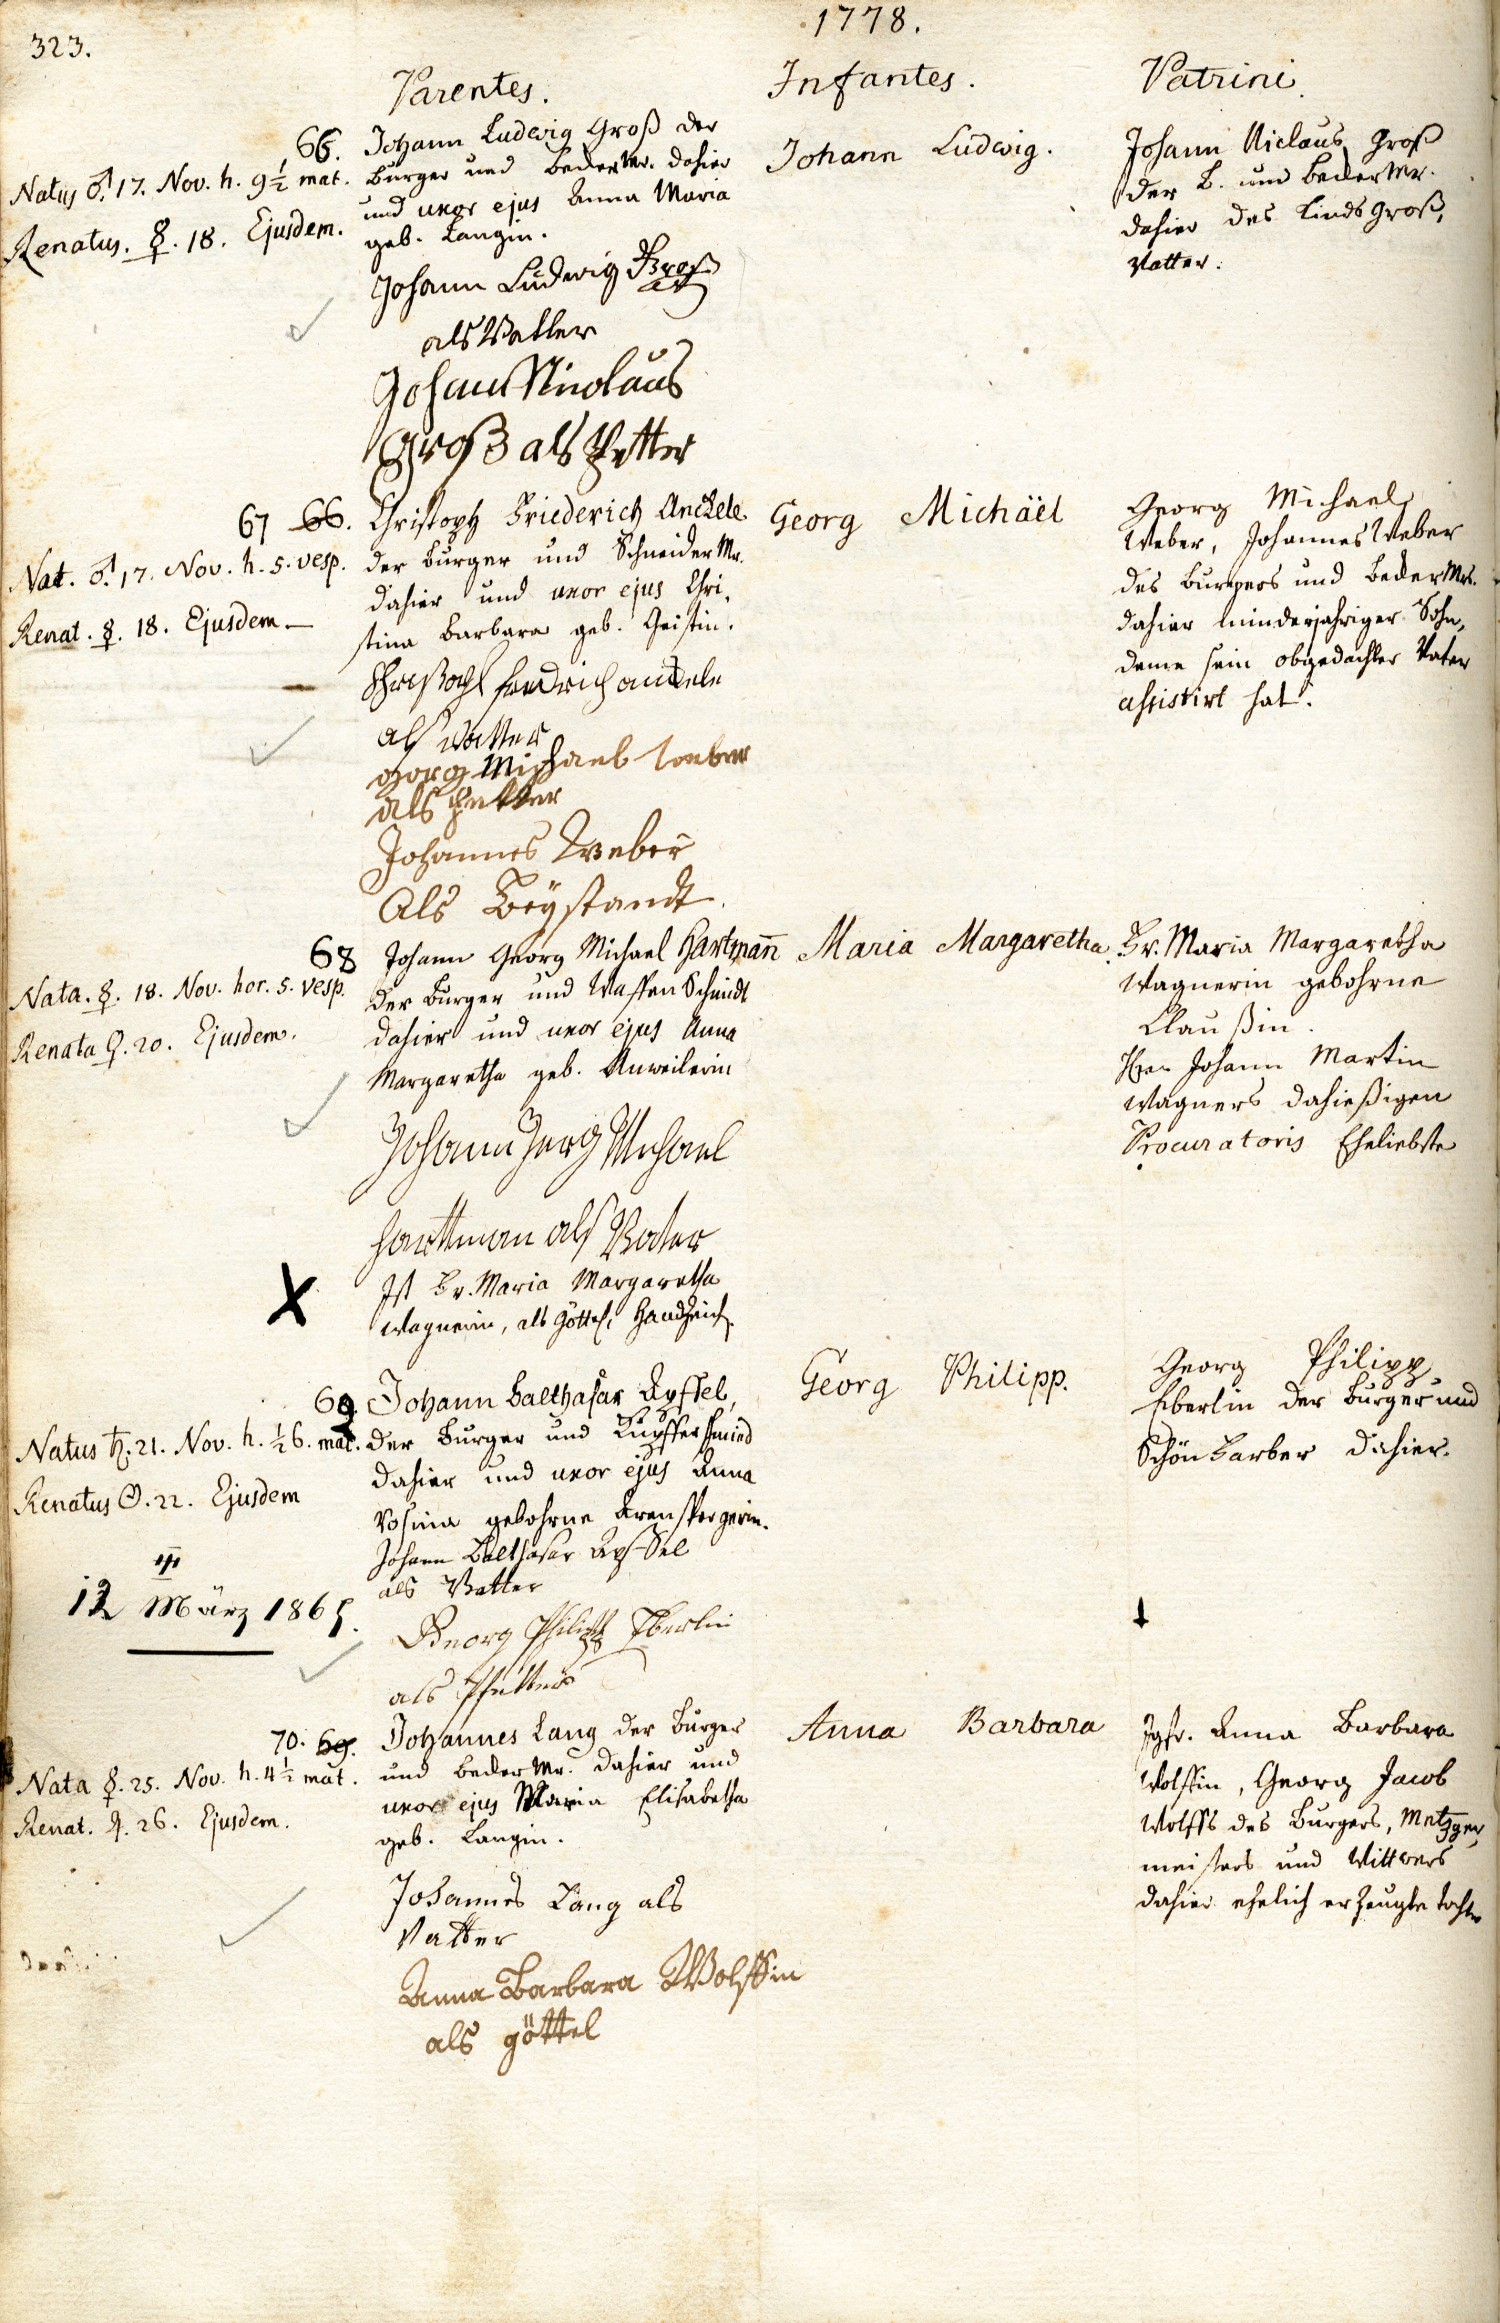 323.
1778.
Parentes.
Infantes.
Patrini.
66.
Natus ♂. 17. Nov. h. 9½ mat.
Renatus. ☿. 18. Ejusdem.
Johann Ludwig Groß der
Burger und Becker Mr. dahier
und uxor ejus Anna Maria
geb. Langin.
Johann Ludwig Groß
als Vatter
Johann Nicolaus
Groß als Pfetter
Johann Ludwig.
Johann Niclaus Groß
der B. und Becker Mr.
dahier des Kinds Groß,
Vatter.
67 66.
Nat. ♂. 17. Nov. h. 5. vesp.
Renat. ☿. 18. Ejusdem.
Christoph Friederich Anckele
der Burger und Schneider Mr.
dahier und uxor ejus Chri,
stina Barbara geb. Geistin.
fredrich anckele
als vatter
georg Michael weber
als Petter
Johannes Weber
Als Beÿstandt.
Georg Michäel
Georg Michael
Weber, Johannes Weber
des Burgers und Becker Mrs.
dahier minderjahriger Sohn,
deme sein obgedachter Vater
assistirt hat.
68
Nata. ☿. 18. Nov. hor. 5. vesp.
Renata ♀. 20. Ejusdem.
Johann Georg Michael Hartmañ
der Burger und Waffen Schmidt
dahier und uxor ejus Anna
Margaretha geb. Anweilerin
Johann Jerg Michael
Harttman als Vater
X
Ist Fr. Maria Margaretha
Wagnerin, als Göttel, Handzeich.
Maria Margaretha
Fr. Maria Margaretha
Wagnerin gebohrne
Claußin.
Hrn Johann Martin
Wagners dahießigen
Procuratoris Eheliebste
69.
Natus ♄. 21. Nov. h. ½6. mat.
Renatus ☉. 22. Ejusdem
Johann Balthasar Apffel,
der Burger und Kupfferschmied
dahier und uxor ejus Anna
Rosina gebohrne Arenspergerin.
Johann Balthasar Apffel
als Vatter
12 März 1865.
Georg Philipp Eberlin
als Pfetter
Georg Philipp.
Georg Philipp
Eberlin der Burger und
Schönfärber dahier.
70. 69.
Nata ☿. 25. Nov. h. 4½ mat.
Renat. ♃. 26. Ejusdem.
Johannes Lang der Burger
und Becker Mr. dahier und
uxor ejus Maria Elisabetha
geb. Langin.
Johannes Lang als
Vatter
Anna Barbara Wolffin
als göttel
Anna Barbara
Jgfr. Anna Barbara
Wolffin, Georg Jacob
Wolffs des Burgers, Metzger
meisters und Wittwers
dahier ehelich erzeugte Tochter